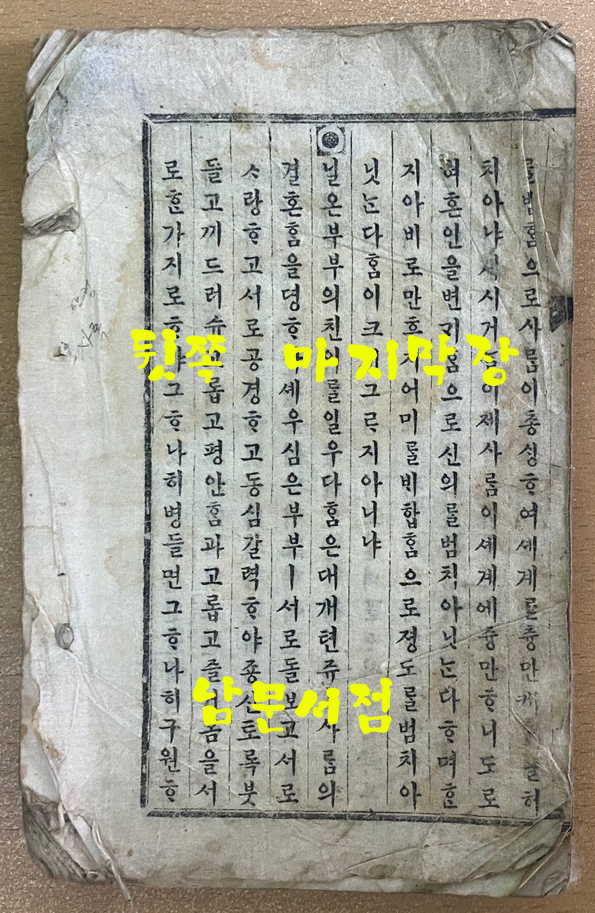 ᄅᆞᆯ범홈으로사ᄅᆞᆷ이총싱ᄒᆞ여셰계ᄅᆞᆯ츙만케 허
치아냐 시거 이제사ᄅᆞᆷ이셰계에츙만ᄒᆞ니도로
혀혼인을변 홈으로신의ᄅᆞᆯ범치아닛ᄂᆞᆫ다ᄒᆞ며ᄒᆞᆫ
지아비로만흔지어미ᄅᆞᆯᄇᆡ합홈으로졍도ᄅᆞᆯ범치아
닛ᄂᆞᆫ다홈이크 그ᄅᆞ지아니냐
닐온부부의친 ᄅᆞᆯ일우다홈은대개텬쥬 사ᄅᆞᆷ의
결혼홈을뎡ᄒᆞ 셰우심은부부ㅣ서로돌보고서로
ᄉᆞ랑ᄒᆞ고서로공경ᄒᆞ고동심갈력ᄒᆞ야죵신토록붓
들고끼드러슈 롭고평안홈과고롭고즐 옴을서
로ᄒᆞᆫ가지로ᄒᆞ 그ᄒᆞ나히병들면그ᄒᆞ나히구원ᄒᆞ
뒷쪽 마지막장
남문서점